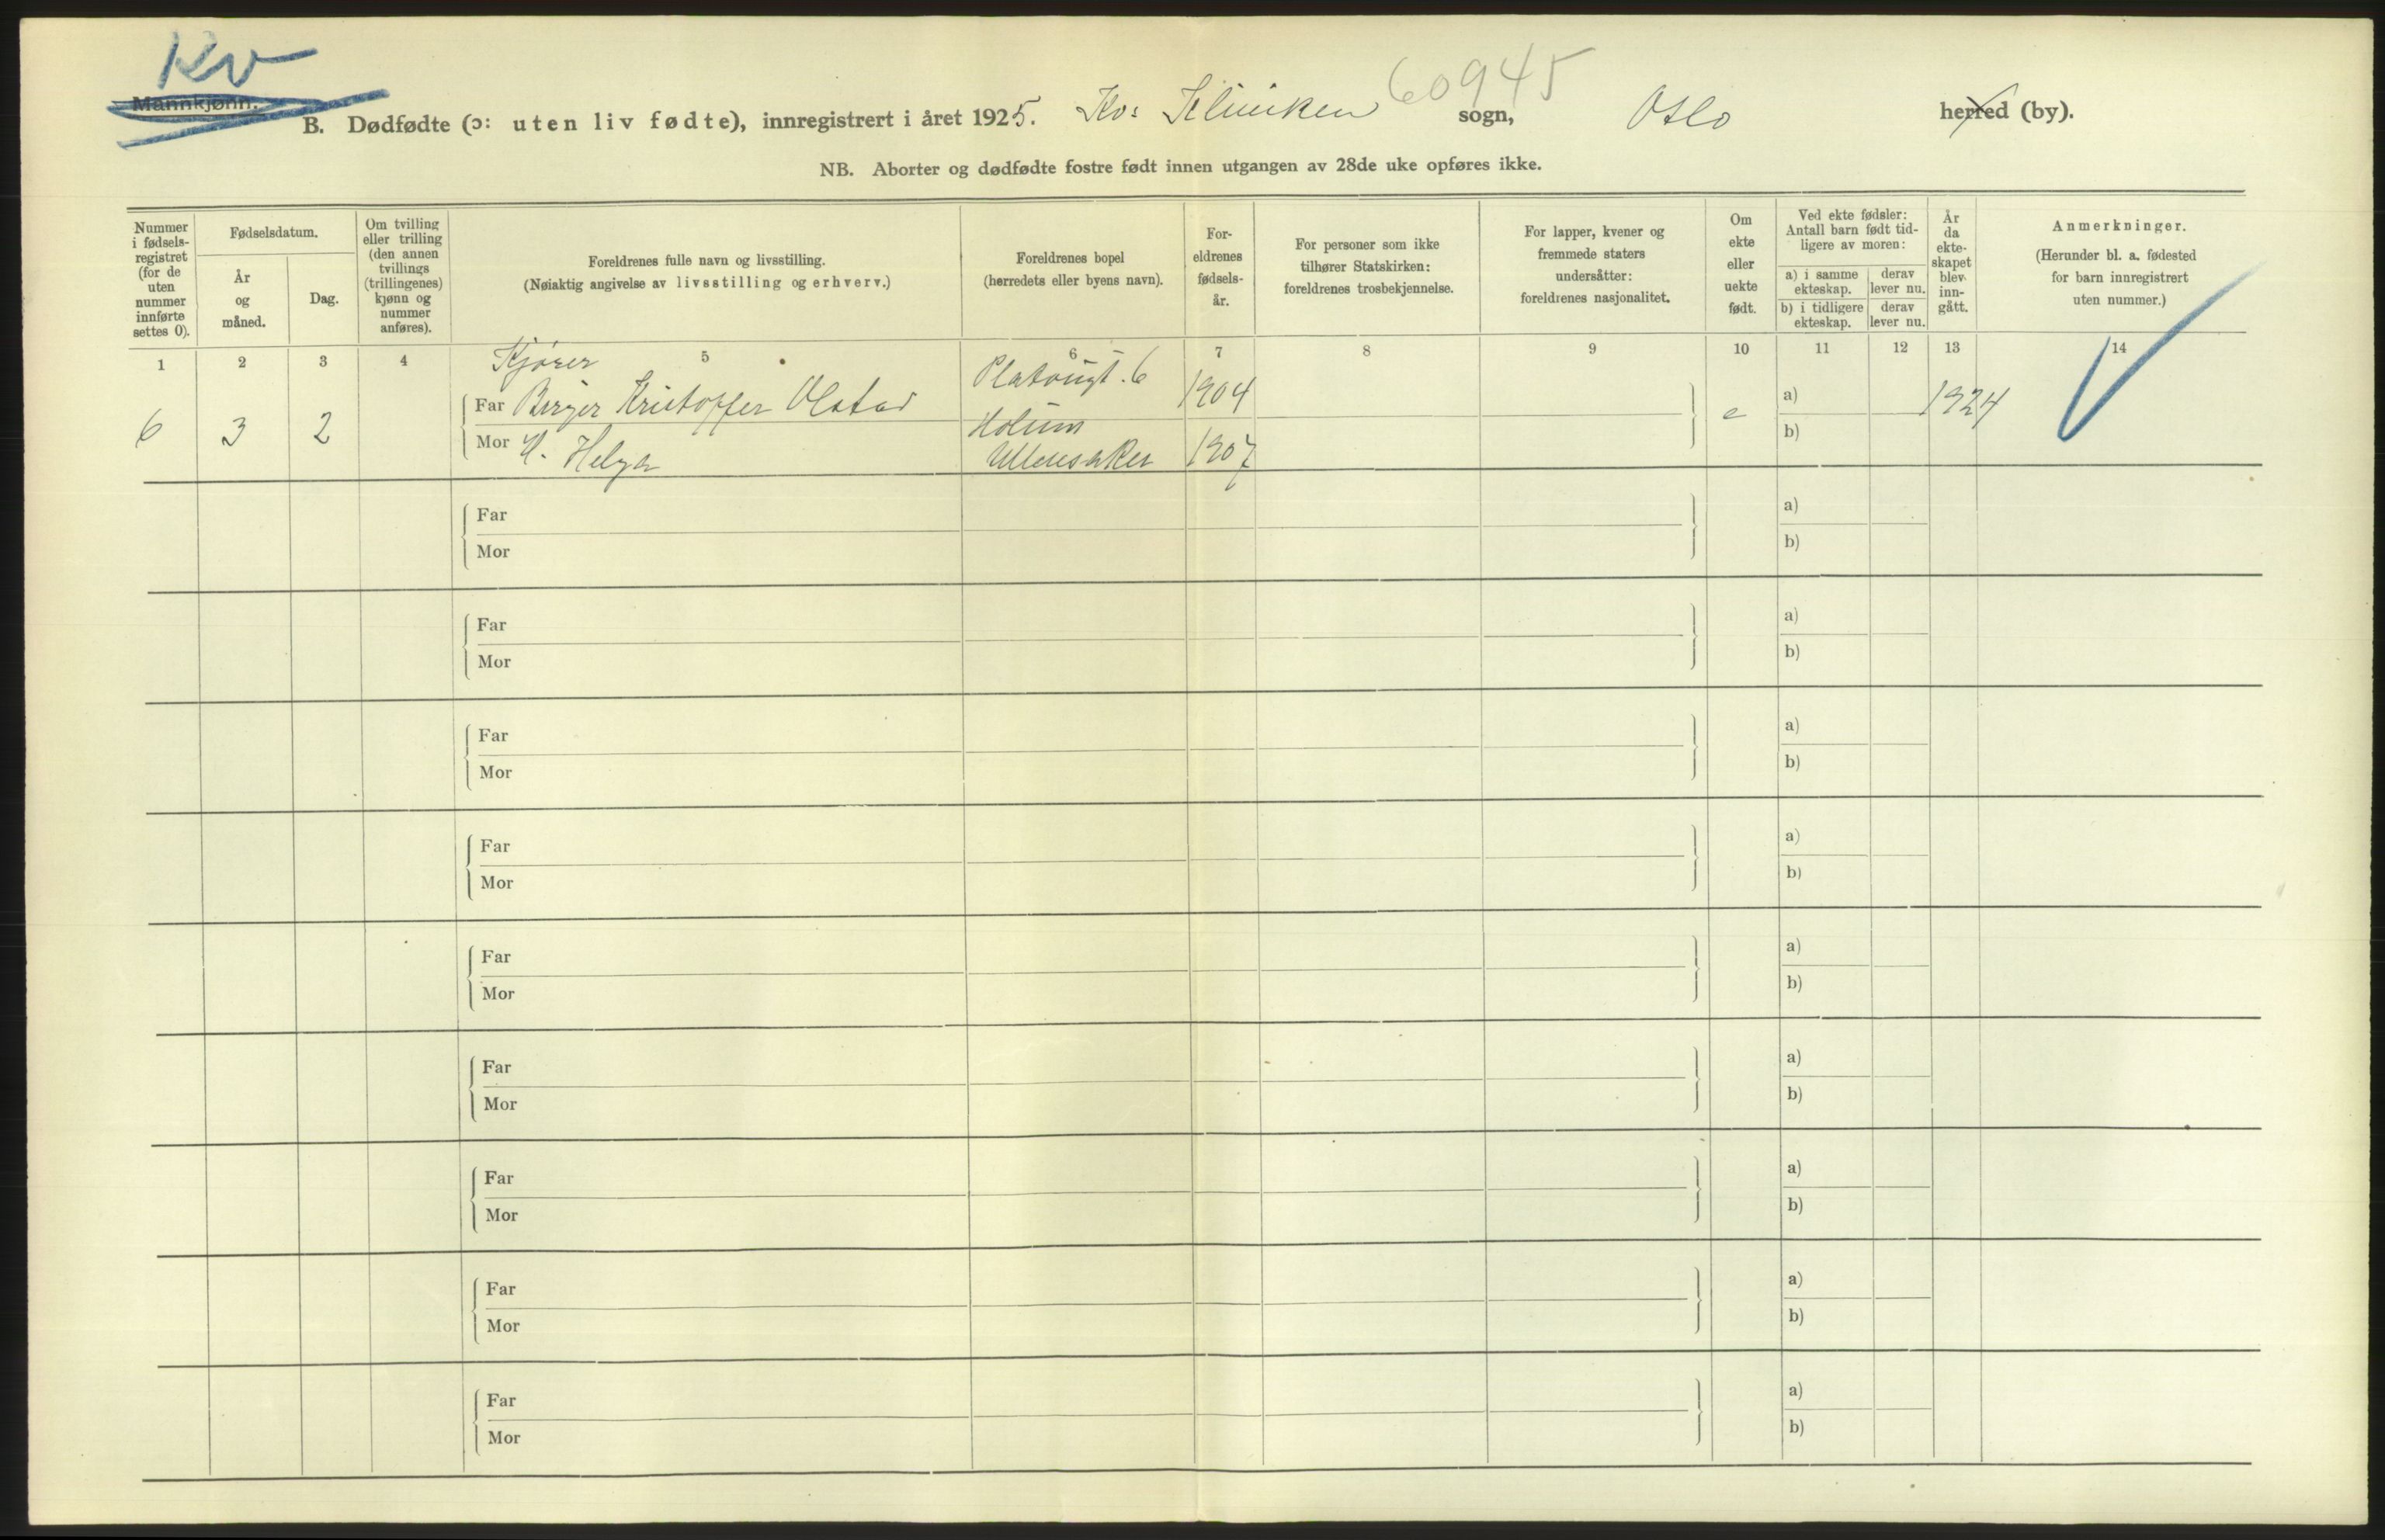 Kv
Mannkjønn.
60945
B. Dødfødte (ɔ: uten liv fødte), innregistrert i året 1925. Kv: Kliniken sogn, Oslo herred (by).
NB. Aborter og dødfødte fostre født innen utgangen av 28de uke opføres ikke.
Nummer
i fødsels-
registret
(for de
uten
nummer
innførte
settes 0).
Fødselsdatum.
År
og
måned.
Dag.
Om tvilling
eller trilling
(den annen
tvillings
(trillingenes)
kjønn og
nummer
anføres).
Foreldrenes fulle navn og livsstilling.
(Nøiaktig angivelse av livsstilling og erhverv.)
Foreldrenes bopel
(herredets eller byens navn).
For-
eldrenes
fødsels-
år.
For personer som ikke
tilhører Statskirken:
foreldrenes trosbekjennelse.
For lapper, kvener og
fremmede staters
undersåtter:
foreldrenes nasjonalitet.
Om
ekte
eller
uekte
født.
Ved ekte fødsler:
Antall barn født tid-
ligere av moren:
a) i samme
ekteskap.
derav
lever nu.
b) i tidligere
ekteskap.
derav
lever nu.
År
da
ekte-
skapet
blev
inn-
gått.
Anmerkninger.
(Herunder bl. a. fødested
for barn innregistrert
uten nummer.)
1 2 3 4 5 6 7 8 9 10 11 12 13 14
Kjører
Far Birger Kristoffer Olstad 1904 a) 1924
6 3 2 e
Holum
Mor H. Helga Ullensaker 1907 b)
Far a)
Mor b)
Far a)
Mor b)
Far a)
Mor b)
Far a)
Mor b)
Far a)
Mor b)
Far a)
Mor b)
Far a)
Mor b)
Far a)
Mor b)
Far a)
Mor b)